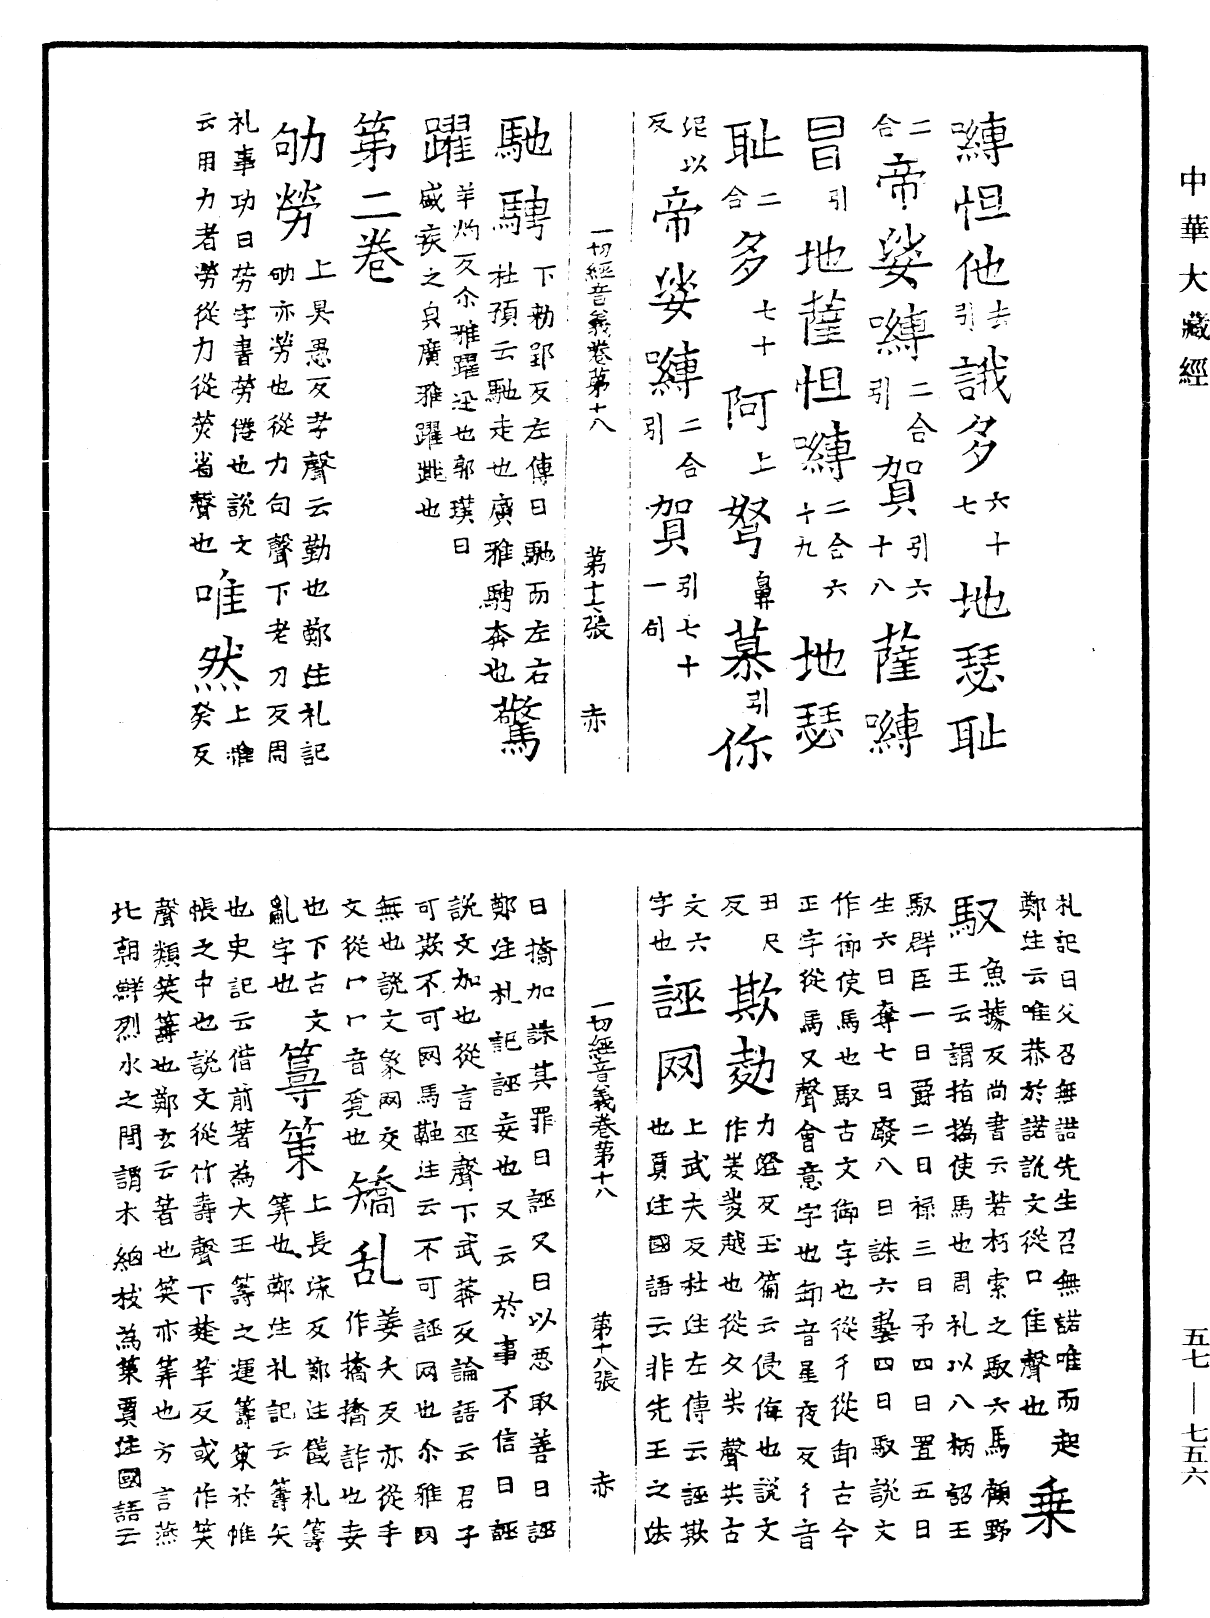 中華大藏經
嚩怛他去引誐多六十七地瑟耻
二合帝娑嚩二合引賀引六十八薩嚩
冒引地薩怛嚩二合六十九地瑟
耻二合多七十阿上努鼻慕引你
泥以反帝娑嚩二合引賀引七十一句
一切經音義卷第十八 第十七張 赤
馳騁下勑郢反左傳曰馳而左右
杜預云馳走也廣雅騁奔也驚
躍羊灼反尒雅躍迅也郭璞曰
盛疾之皃廣雅躍跳也
第二卷
劬勞上具愚反孝聲云勤也鄭注礼記
劬亦勞也從力句聲下老刀反周
礼事功曰勞字書勞倦也說文
云用力者勞從力從熒省聲也唯然上惟癸反
札記曰父召無諾先生召無諾唯而起
鄭注云唯恭於諾說文從口隹聲也乗
馭魚據反尚書云若朽索之馭六馬顧野
王云謂指撝使馬也周礼以八柄詔王
馭群臣一曰爵二曰禄三曰予四曰置五曰
生六曰奪七曰廢八曰誅六藝四曰馭說文
作御使馬也馭古文御字也從彳從卸古今
正字從馬又聲會意字也卸音星夜反彳音
丑尺反欺㔹力蹬反玉篇云侵侮也說文
作夌夌越也從夂㚇聲㚇古
文六字也誣网上武夫反杜注左傳云誣欺
也賈注國語云非先王之法
曰撟加誅其罪曰誣又曰以惡取善曰誣
鄭注札記誣妄也又云於事不信曰誣
說文加也從言巫聲下武莽反論語云君子
可欺不可网馬融注云不可誣网也尒雅网
無也說文象网交
文從冂冂音覓也矯乱姜夭反亦從手
作撟撟詐也妄
也下古文
亂字也籌筞上長流反鄭注儀札籌
筭也鄭注札記云籌矢
也史記云借前著為大王籌之運籌筞於帷
帳之中也說文從竹壽聲下楚革反或作筴
聲類筴籌也鄭玄云著也筴亦筭也方言燕
北朝鮮烈水之閒謂木細枝為筞賈注國語云
一切經音義卷第十八 第十八張 赤
五七—七五六